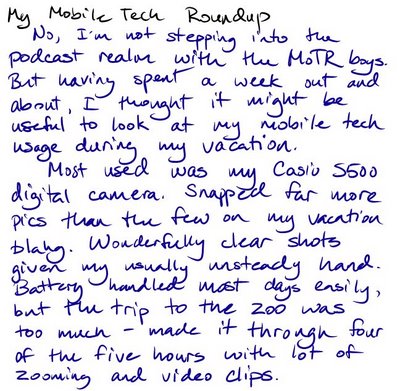 My Mobile Tech Roundup
No, I'm not stepping into the
podcast realm with the MoTR boys.
But having spent a week out and
about, I thought it might be
useful to look at my mobile tech
usage during my vacation.
Most used was my Casio S500
digital camera. Snapped far more
pics than the few on my vacation
blahg. Wonderfully clear shots
given my usually unsteady hand.
Battery handled most days easily,
but the trip to the zoo was
too much - made it through four
of the five hours with lot of
zooming and video clips.